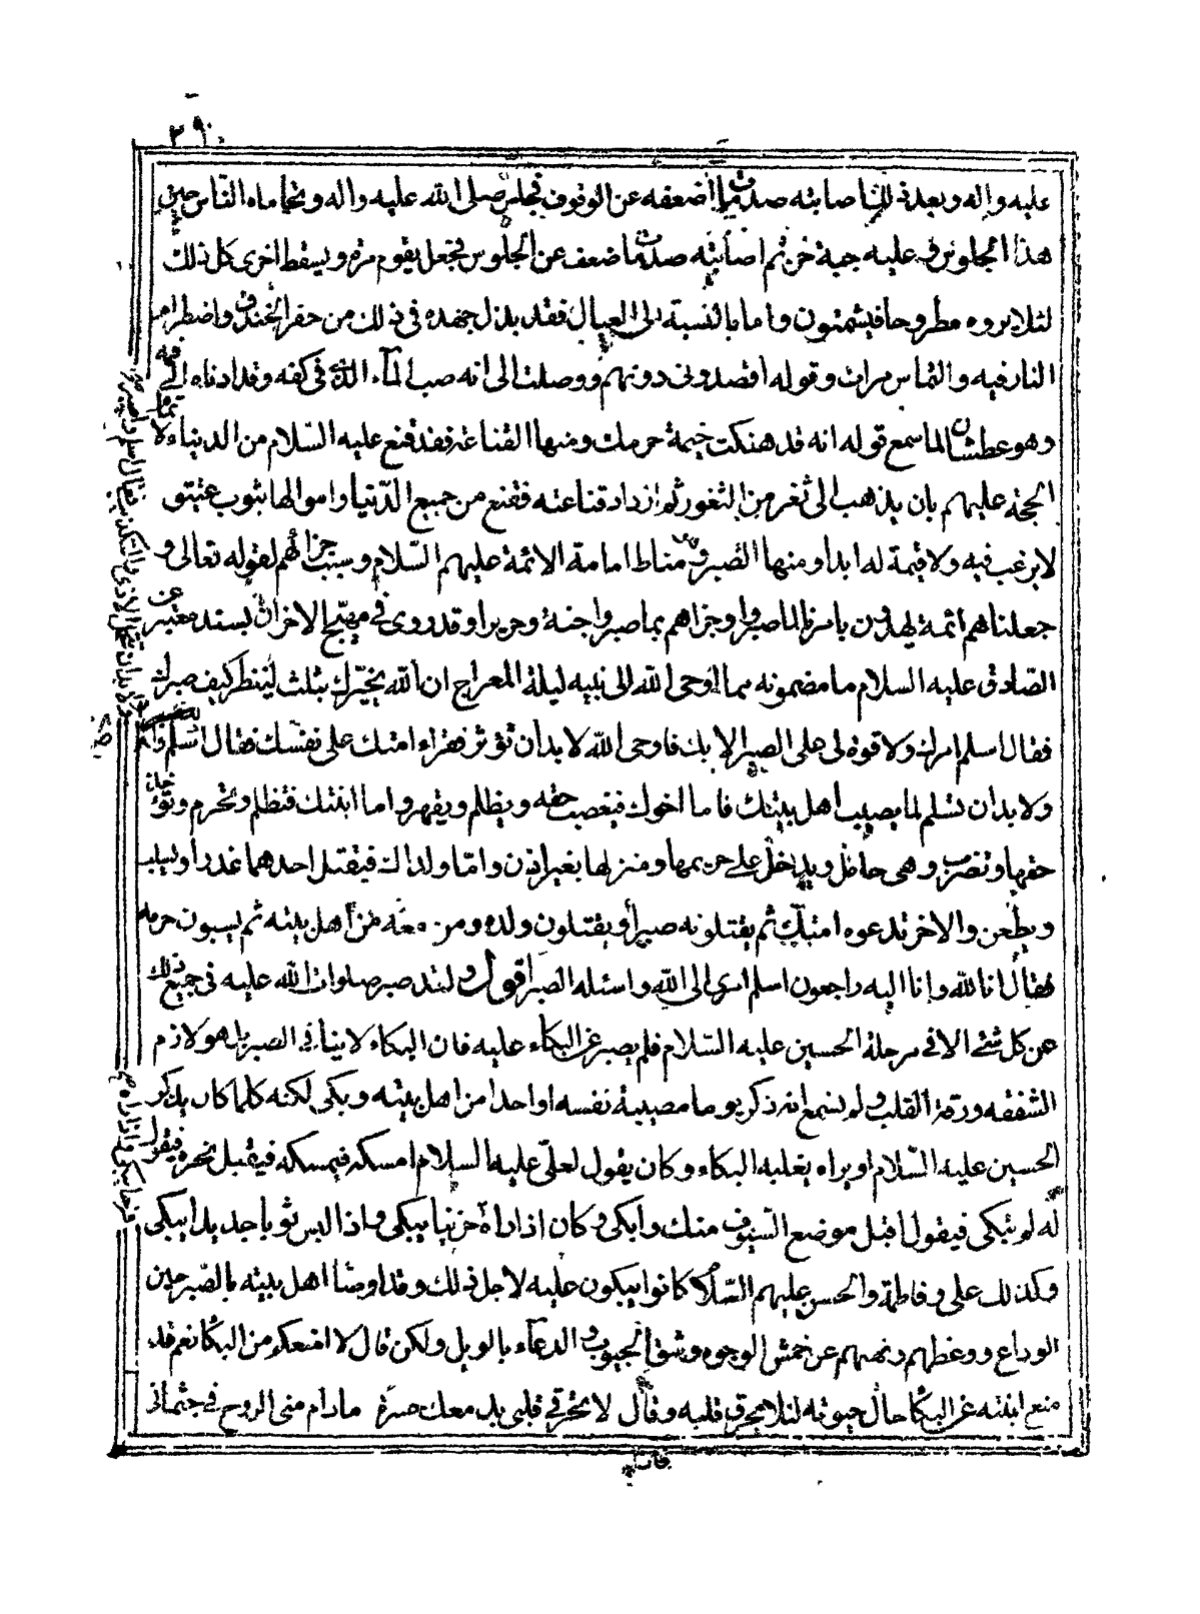 ٢٩٠
عليه واله وبعد ذلك اصابته صدمة اضعفه عن الوقوف فجلس صلى الله عليه واله وتحاماه الناس حين
هذا الجلوس في عليه جبة خز ثم اصابته صدمة ما ضعف عن الجلوس فجعل يقوم مرة ويسقط اخرى كل ذلك
لئلا يروه مطروحا فيشمتون واما بالنسبة الى العيال فقد بذل جهده في ذلك من حفر الخندق واضطرام
النار فيه والتماس مرات وقوله اقصدوني دونهم ووصلت الى انه صب الماء الذي في كفه وقد ادناه الى فيه
وهو عطشان لما سمع قوله انه قد هتكت خيمة حرمك ومنها القناعة فقد قنع عليه السلام من الدنيا لاتمام
الحجة عليهم بان يذهب الى ثغر من الثغور ثم ازداد قناعته فقنع من جميع الدنيا واموالها بثوب عتيق
لا يرغب فيه ولا قيمة له ابدا ومنها الصبر وهو مناط امامة الائمة عليهم السلام وسبب جزائهم لقوله تعالى و
جعلناهم أئمة يهدون بامرنا لما صبروا وجزاهم بما صبروا جنة وحريرا وقد روى في مصبح الاخران بسند معتبر عن
الصادق عليه السلام ما مضمونه مما اوحى الله الى نبيه ليلة المعراج ان الله يخيرك بثلث لينظر كيف صبرك
فقال اسلم امرك ولا قوة لي على الصبر الا بك فاوحى الله لا بد ان تؤثر فقراء امتك على نفسك فقال اسلم
ولا بد ان تسلم لما يصيب اهل بيتك فاما اخوك فيغصب حقه ويظلم ويقهر واما ابنتك فتظلم وتحرم وتؤخذ
حقها وتضرب وهي حامل ويدخل على حريمها ومنزلها بغير اذن واما ولداك فيقتل احدهما غدرا ويسلب
ويطعن والاخر تدعوه امتك ثم يقتلونه صبرا ويقتلون ولده ومن معه من أهل بيته ثم يسبون حرمه
فقال انا لله وإنا اليه راجعون اسلم امري الى الله واسئله الصبر اقول ولقد صبر صلوات الله عليه في جميع ذلك
عن كل شئ الا في مرحلة الحسين عليه السلام فلم يصبر عن البكاء عليه فان البكاء لا ينافي الصبر بل هو لازم
الشفقه ورقة القلب ولم نسمع انه ذكر يوما مصيبة نفسه او احدا من اهل بيته وبكى لكنه كلما كان يذكر
الحسين عليه السلام او يراه يغلبه البكاء وكان يقول لعلي عليه السلام امسكه فيمسكه فيقبل نحره فيقول
له لم تبكي فيقول اقبل موضع السيوف منك وابكي وكان اذا راه حزينا يبكي واذا لبس ثوبا جديدا يبكي
وكذلك على وفاطمة والحسن عليهم السلام كانوا يبكون عليه لاجل ذلك وقد اوصى اهل بيته بالصبر حين
الوداع ووعظهم ونهيهم عن خمش الوجوه وشق الجيوب والدعاء بالويل ولكن قال لا امنعكم من البكا نعم قد
منع ابنته عن البكا حال حيوته لئلا يحرق قلبه وقال لا تحرقي قلبي بدمعك حسرة ما دام مني الروح في جثماني